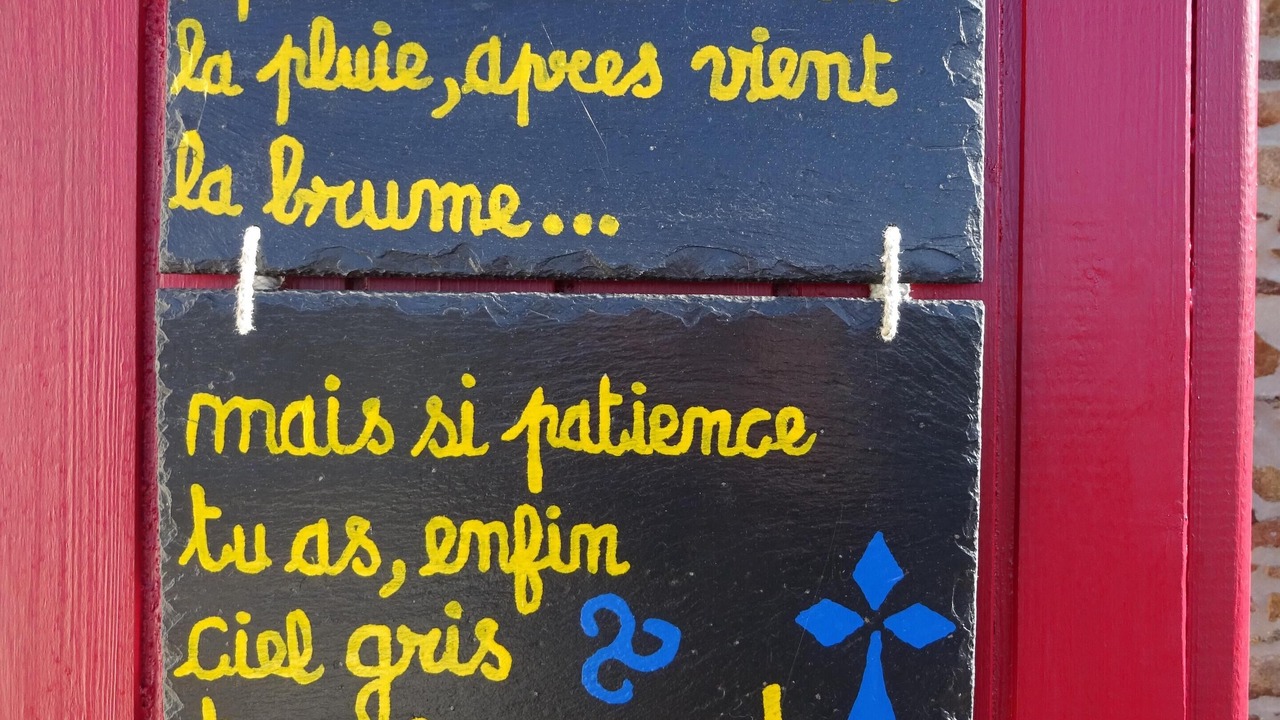 la pluie, apres vient
la brume...
mais si patience
tu as, enfin
ciel gris